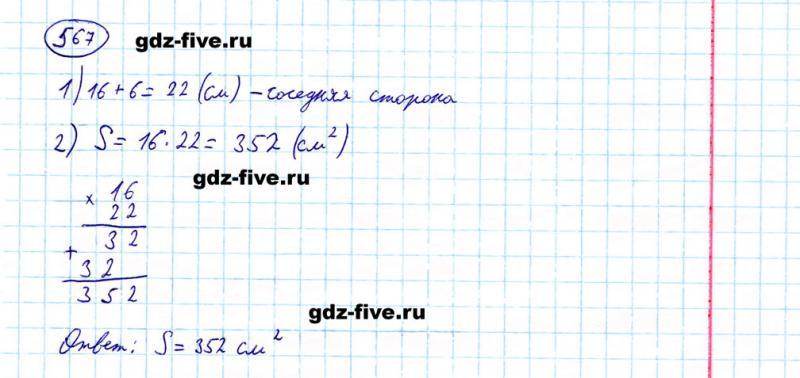 567 gdz-five.ru
1) 16 + 6 = 22 (см) – соседняя сторона
2) S = 16 · 22 = 352 (см²)
gdz-five.ru
× 16
22
+ 32
32
352
gdz-five.ru
Ответ: S = 352 см²